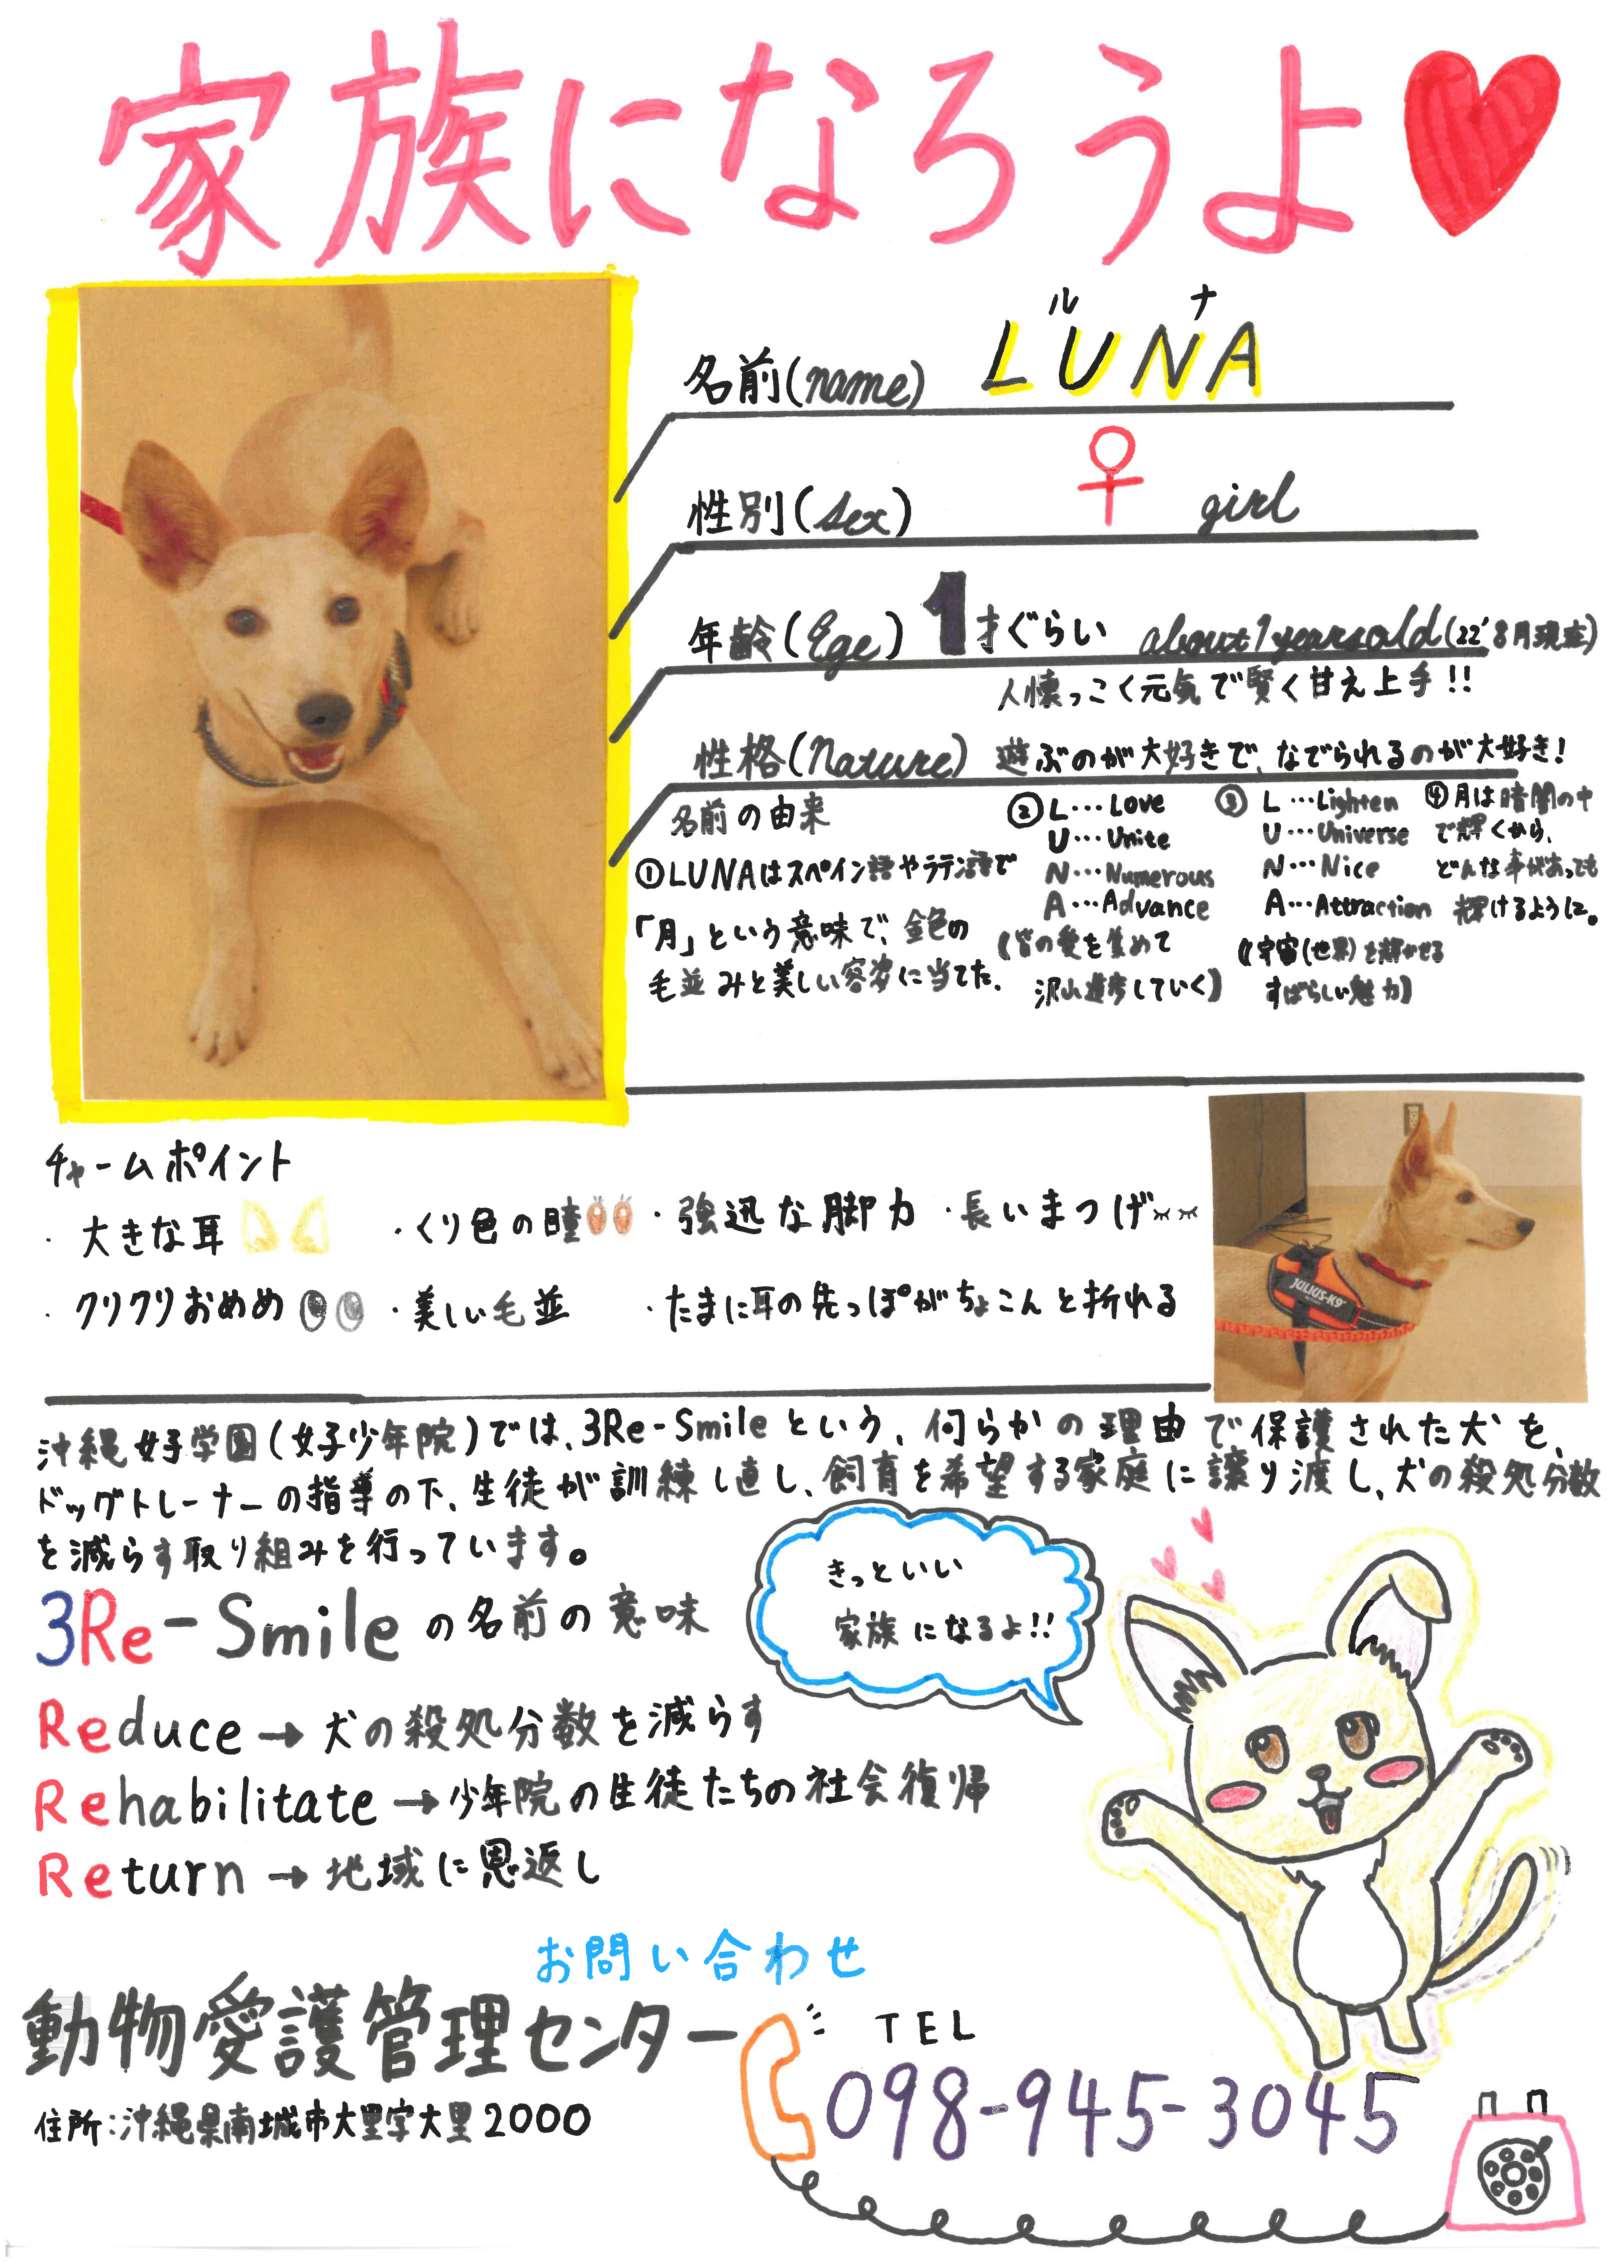 家族になろうよ
ル ナ
名前(name) LUNA
性別(sex) ♀ girl
年齢(Ege) 1才ぐらい about 1 years old (22'8月現在)
人懐っこく元気で賢く甘え上手!!
性格(Nature) 遊ぶのが大好きで、なでられるのが大好き!
名前の由来
①LUNAはスペイン語やラテン語で
「月」という意味で、金色の
毛並みと美しい容姿に当てた.
②L…Love
U…Unite
N…Numerous
A…Advance
(皆の愛を集めて
沢山進歩していく)
③ L…Lighten
U…Universe
N…Nice
A…Attraction
(宇宙(世界)を輝かせる
すばらしい魅力)
④月は暗闇の中
で輝くから、
どんな事があっても
輝けるように。
チャームポイント
・大きな耳 ・くり色の瞳 ・強迅な脚力 ・長いまつげ
・クリクリおめめ ・美しい毛並 ・たまに耳の先っぽがちょこんと折れる
JULIUS-K9
沖縄女子学園(女子少年院)では、3Re-Smileという、何らかの理由で保護された犬を、
ドッグトレーナーの指導の下、生徒が訓練し直し、飼育を希望する家庭に譲り渡し、犬の殺処分数
を減らす取り組みを行っています。
きっといい
家族になるよ!!
3Re-Smileの名前の意味
Reduce→犬の殺処分数を減らす
Rehabilitate→少年院の生徒たちの社会復帰
Return→地域に恩返し
お問い合わせ
動物愛護管理センター
TEL
098-945-3045
住所:沖縄県南城市大里字大里2000